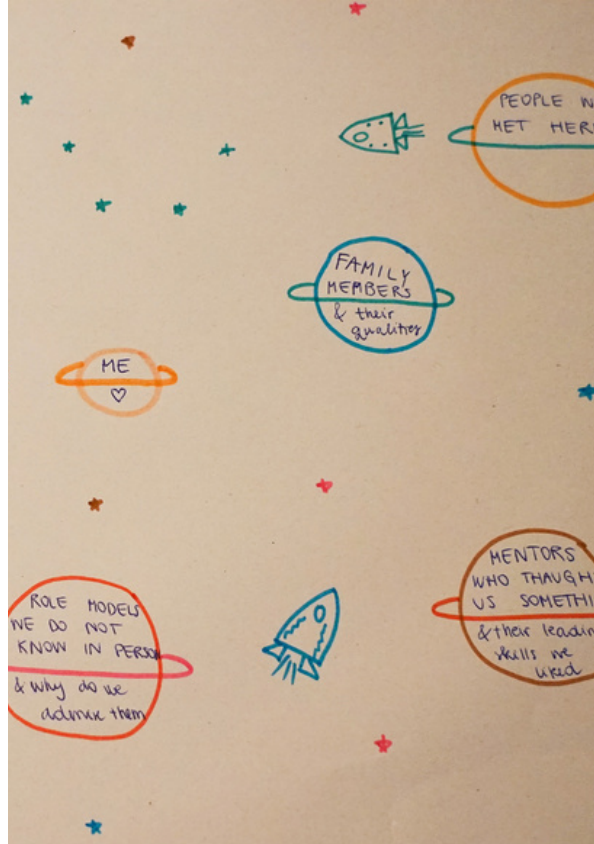 PEOPLE W
MET HER
FAMILY
MEMBERS
& their
qualities
ME
MENTORS
WHO THAUGH
US SOMETHI
& their leadin
skills we
liked
ROLE MODELS
WE DO NOT
KNOW IN PERSON
& why do we
admire them